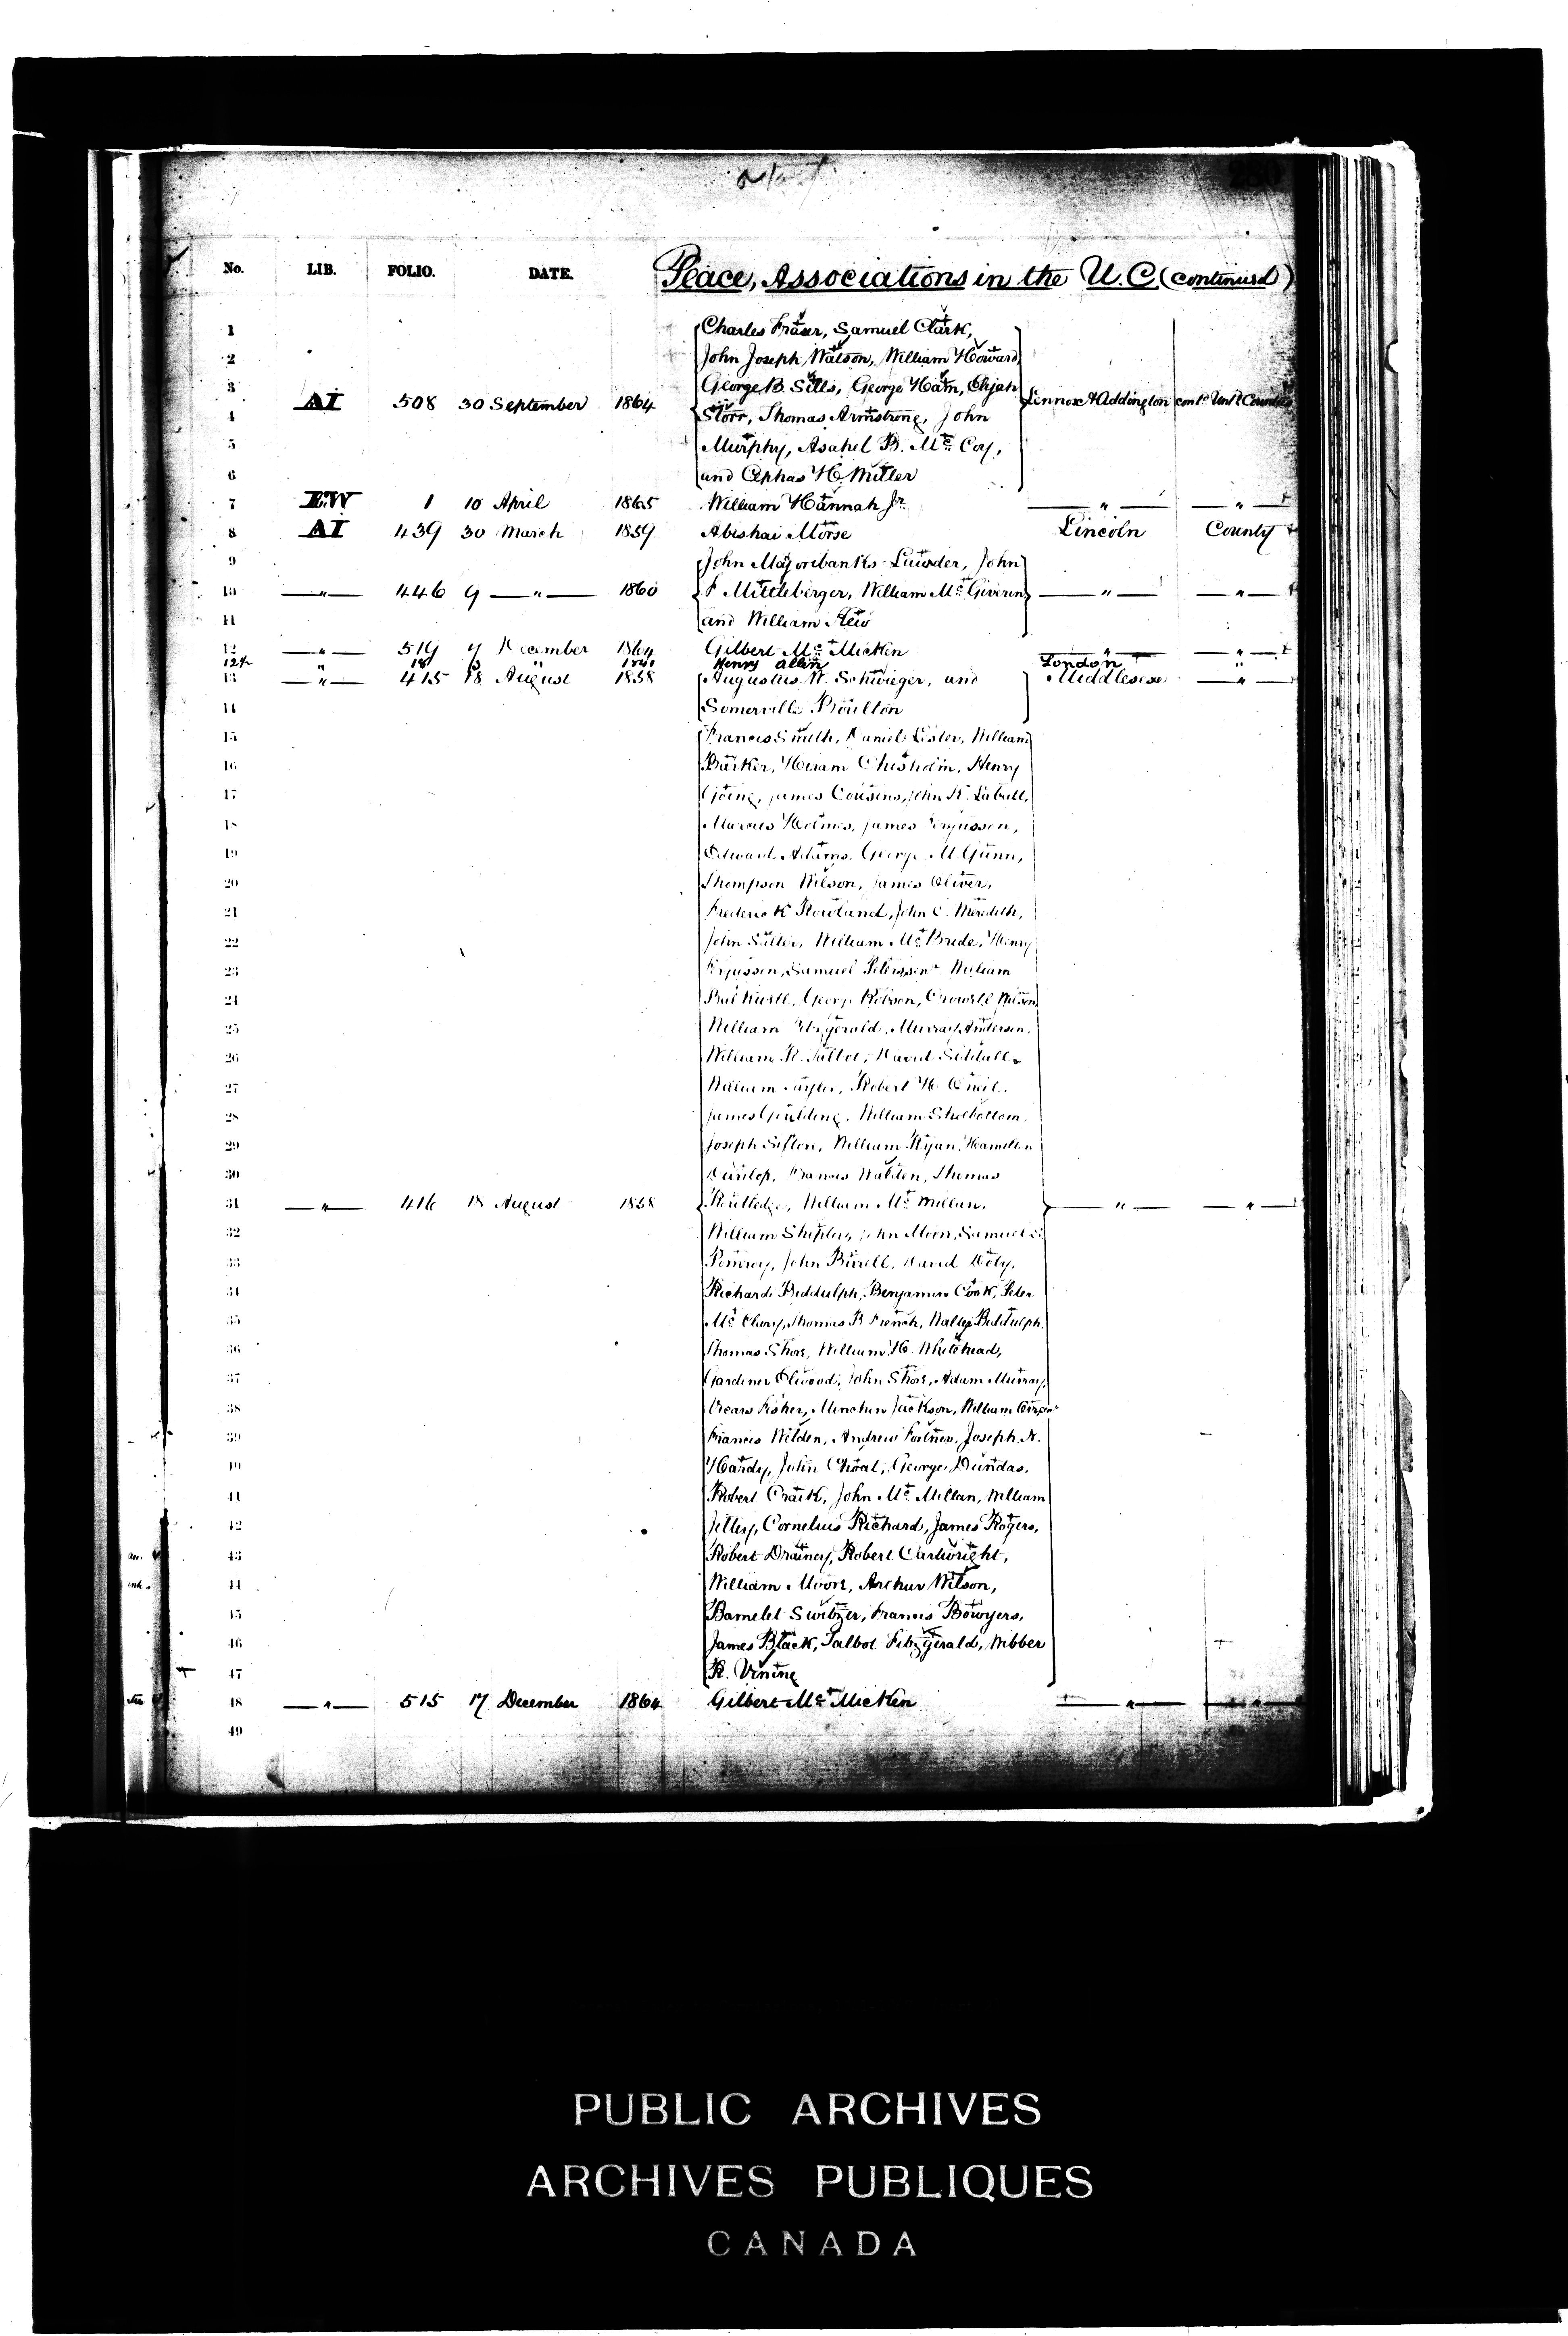 280
No. LIB. FOLIO. DATE. Peace, Associations in the U.C. (continued)
1 Charles Fraser, Samuel Clark,
2 John Joseph Watson, William Howard,
3 George B. Sills, George Ham, Elijah
AI 508 30 September 1864 Lennox & Addington cont.
4 Storr, Thomas Armstrong, John
5 Murphy, Asahel B. Mc Coy,
6 and Cephas H. Miller
7 EW 1 10 April 1865 William Hannah Jr. " "
8 AI 439 30 March 1859 Abishai Morse Lincoln County
9 John Majoribanks Lawder, John
10 " 446 9 " 1860 F. Mittleberger, William Mc Giverin " "
11 and William
12 " 519 17 December 1864 Gilbert Mc Micken " "
12½ " 18 " Henry Allen London "
13 " 415 18 August 1858 Augustus W. Schwieger, and Middlesex "
14 Somerville Boulton
15 Francis Smith, Daniel Lester, William
16 Barker, Hiram Chisholm, Henry
17 Going, James Cousins, John K. Labatt,
18 Marcus Holmes, James Fergusson,
19 Edward Adams, George M. Gunn,
20 Thompson Wilson, James Oliver,
21 Frederick Rowland, John C. Meredith,
22 John Salter, William Mc Bride, Henry
23 Fergusson, Samuel Peterson William
24 George Robson, Crowell Wilson
25 William Fitzgerald, Murray Anderson,
26 William R. Talbot, David Siddall
27 William Taylor, Robert H. O'Neil,
28 James Goulding, William Shoebottom,
29 Joseph Sifton, William Ryan, Hamilton
30 Dunlop, Francis Walden, Thomas
31 " 416 18 August 1858 Routledge, William Mc Millan, " "
32 William Shipley, John Moor, Samuel
33 Pomroy, John Burell, David Doty,
34 Richard Biddulph, Benjamin Cook, Peter
35 Mc Clary, Thomas B. French, Biddulph,
36 Thomas Shore, William H. Whitehead,
37 Gardiner Elwood, John Shore, Adam Murray,
38 Fisher, Minchin Jackson, William
39 Francis Wilden, Andrew Joseph N.
40 Hardy, John Choat, George Dundas,
41 Robert Craik, John Mc Millan, William
42 Jellery, Cornelius Richard, James Rogers,
43 Robert Drainey, Robert Cartwright,
44 William Moore, Arthur Wilson,
45 Bamelet Switzer, Francis Bowyers,
46 James Black, Talbot Fitzgerald, Webber
47 R. Vining
48 " 515 17 December 1864 Gilbert Mc Micken " "
49
PUBLIC ARCHIVES
ARCHIVES PUBLIQUES
CANADA